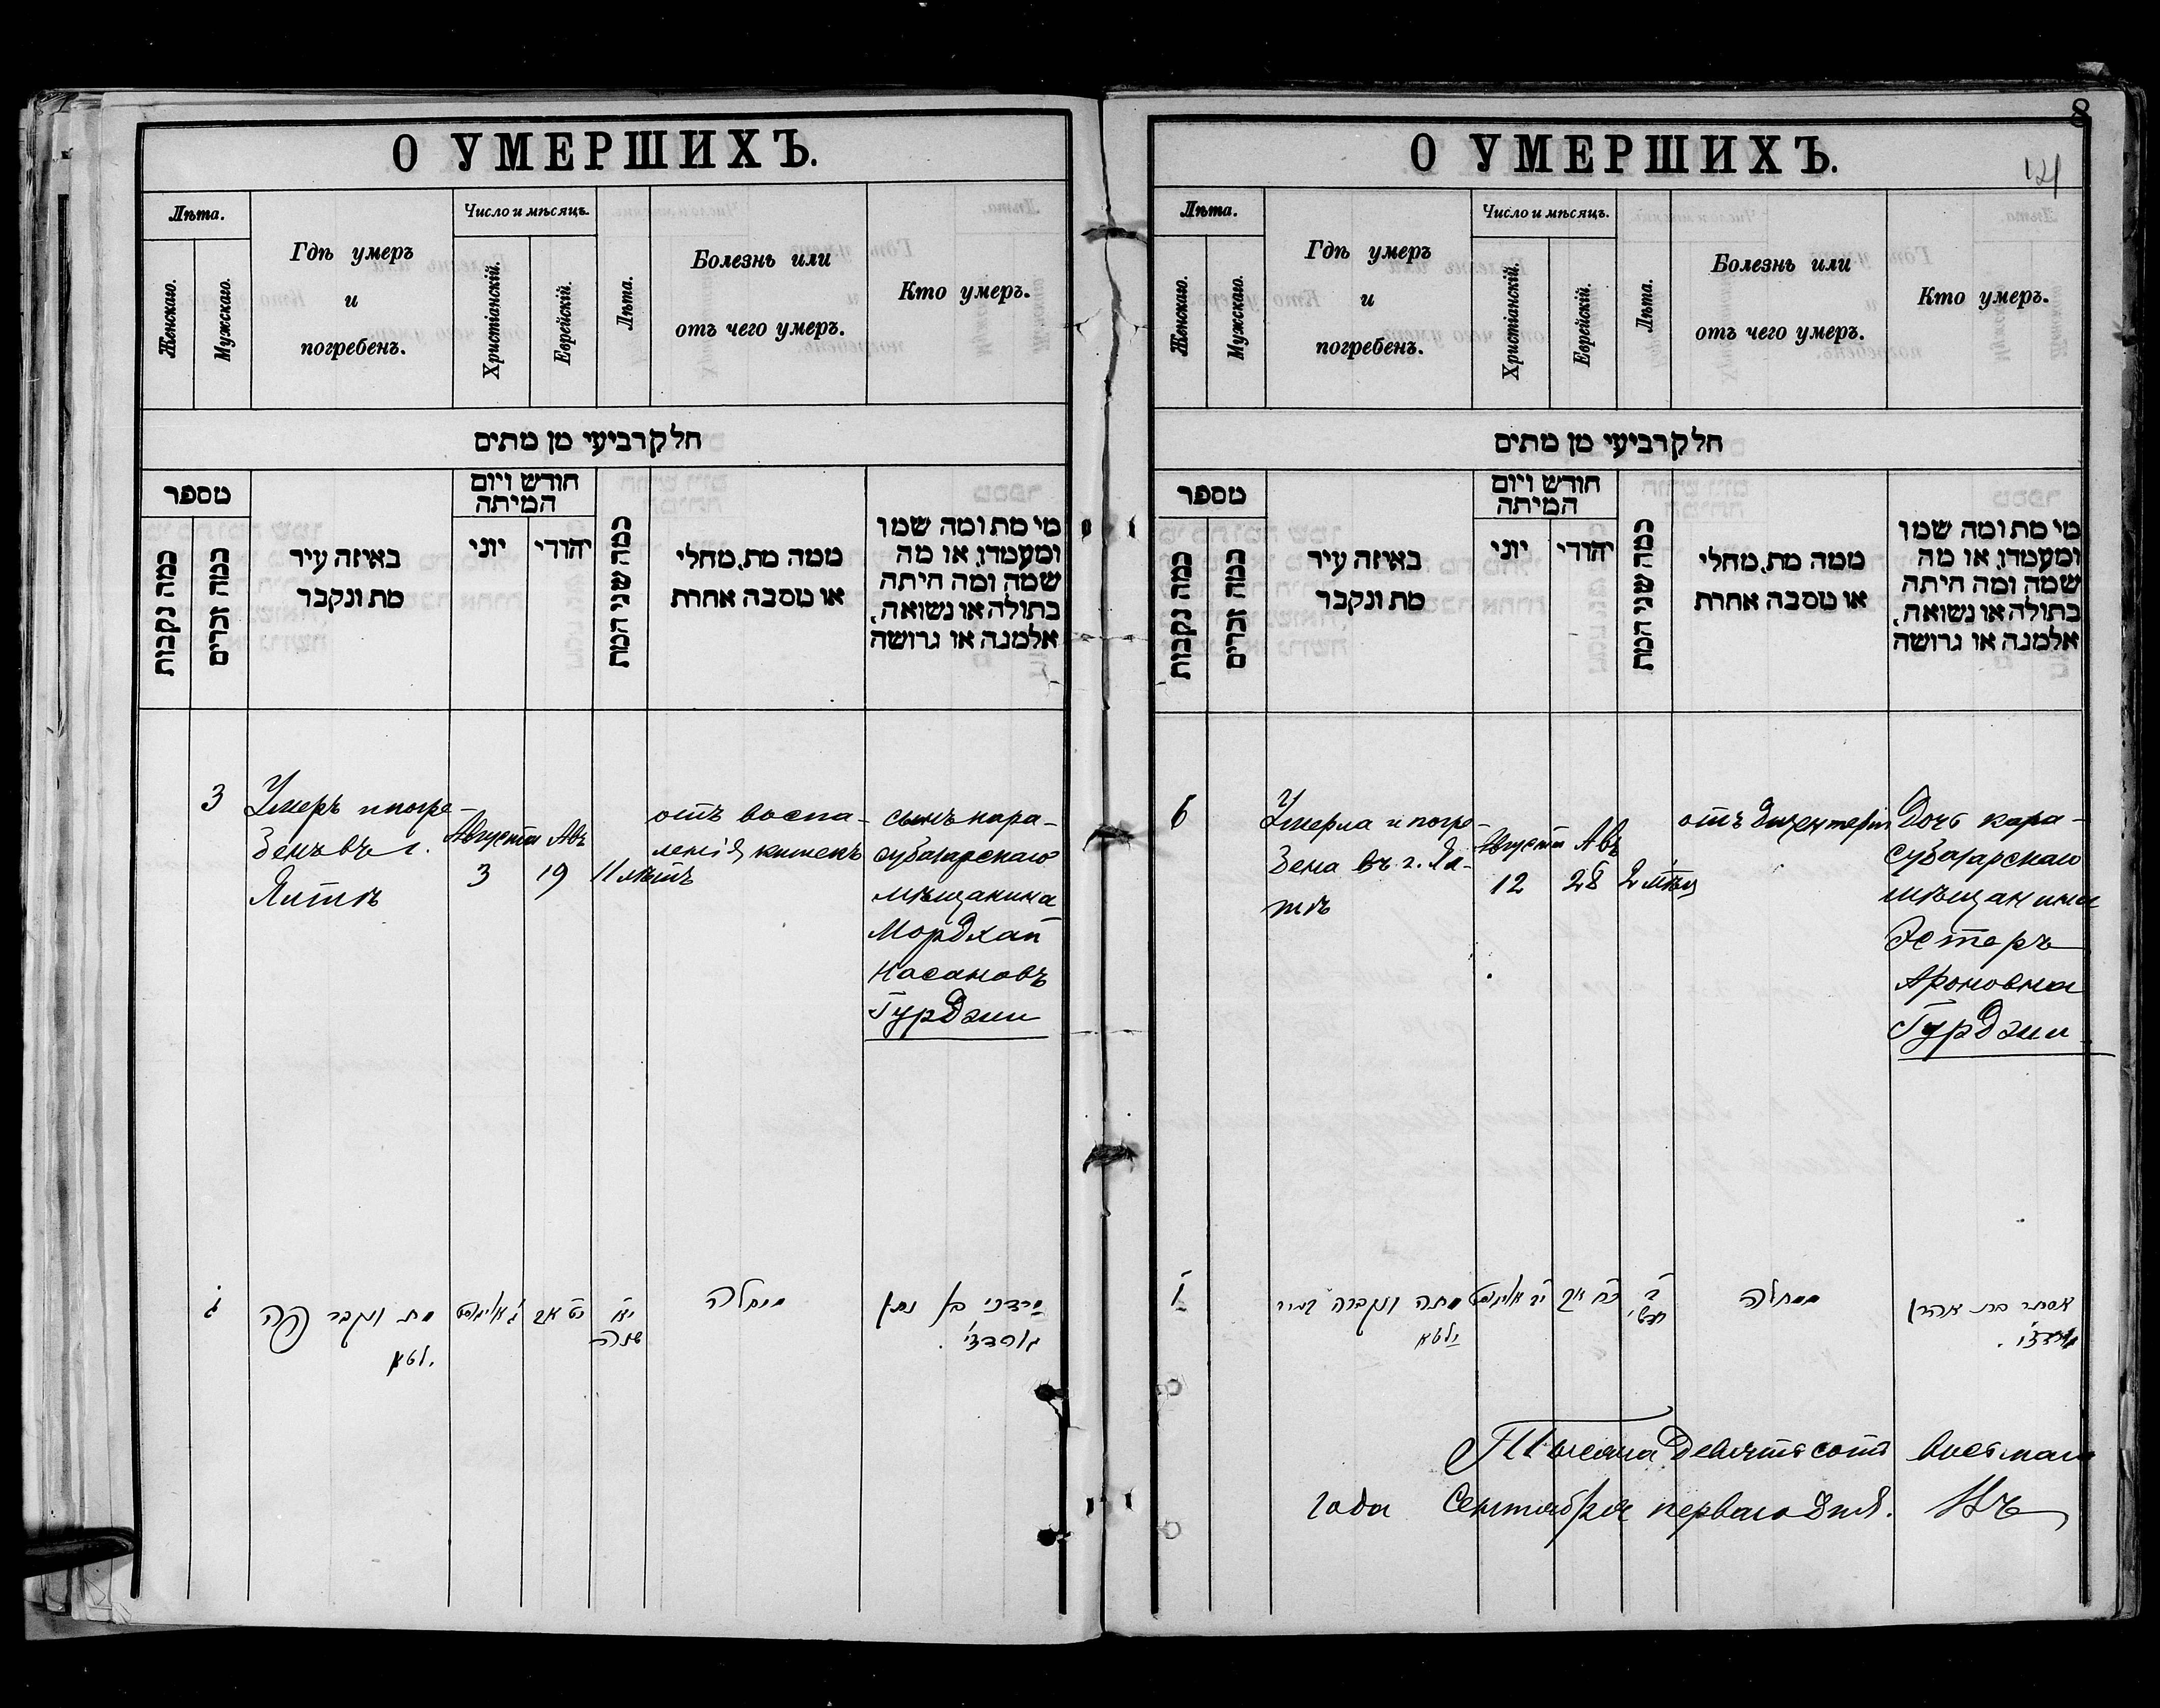 8
О УМЕРШИХЪ.
Лѣта.
Женскаго.
Мужскаго.
Гдѣ умеръ
и
погребенъ.
Число и мѣсяцъ.
Христіанскій.
Еврейскій.
Лѣта.
Болезнь или
отъ чего умеръ.
Кто умеръ.
חלק רביעי מן מתים
מספר
כמה נקבות
כמה זכרים
באיזה עיר
מת ונקבר
חודש ויום
המיתה
יוני
יהודי
כמה שני המת
ממה מת, מחלי
או מסבה אחרת
מי מת ומה שמו
ומעמדו, או מה
שמה ומה היתה
בתולה או נשואה,
אלמנה או גרושה
3
Умеръ и погре-
бенъ въ г.
Ялтѣ
Августа
3
Авъ
19
11 лѣтъ
отъ воспа-
ленія кишекъ
сынъ кара-
субазарскаго
мѣщанина
Мордхай
Насановъ
Гурджи
ג
מת ונקבר פה
ילטא
ג אויגוסט
יט אב
יא
שנה
מחלה
מרדכי בן נתן
גורדזי.
О УМЕРШИХЪ.
121
Лѣта.
Женскаго.
Мужскаго.
Гдѣ умеръ
и
погребенъ.
Число и мѣсяцъ.
Христіанскій.
Еврейскій.
Лѣта.
Болезнь или
отъ чего умеръ.
Кто умеръ.
חלק רביעי מן מתים
מספר
כמה נקבות
כמה זכרים
באיזה עיר
מת ונקבר
חודש ויום
המיתה
יוני
יהודי
כמה שני המת
ממה מת, מחלי
או מסבה אחרת
מי מת ומה שמו
ומעמדו, או מה
שמה ומה היתה
בתולה או נשואה,
אלמנה או גרושה
6
Умерла и погре-
бена въ г. Ял-
тѣ
Августа
12
Авъ
28
2 мѣц
отъ дизентеріи
Дочь кара-
субазарскаго
мѣщанина
Эстеръ
Ароновна
Гурджи
ו
מתה ונקברה בעיר
ילטא
יב אויגוסט
כח אב
ב
חדשי
מחלה
אסתר בת אהרן
גורדזי.
Тысяча девятьсотъ восьмаго
года Сентября перваго дня.